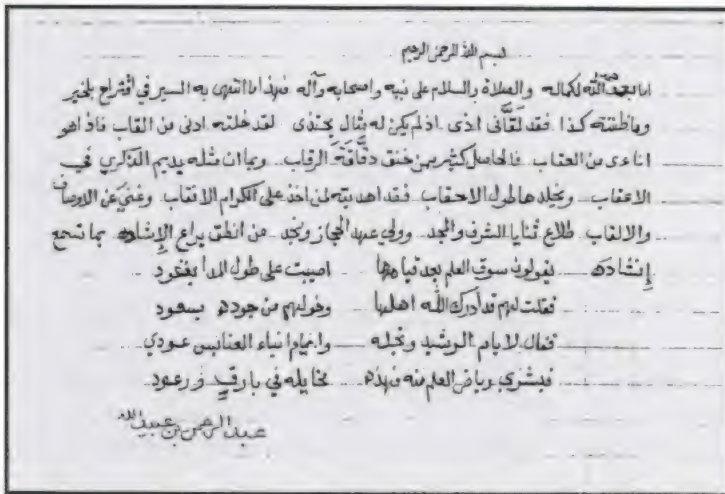 بسم الله الرحمن الرحيم
اما بعد حمد الله لكماله والصلاة والسلام على نبيه واصحابه وآله فهذا ما انتهى به السير في اقتراح بلخير
وما ظننته كذا. فقد لقّاني اذى اذ لم يكن له مثال يحتذى لقد خلته ادنى من القاب فاذا هو
اناءى من العقاب فالحاصل كثير من خنق دقاقة الرقاب وبما ان مثله يديم الذكرى في
الاعقاب ويخلدها طول الاحقاب فقد اهديته لمن اخذ على الكرام الانقاب وغني عن الاوصاف
والالقاب طلاع ثنايا الشرف والمجد وولي عهد الحجاز ونجد من انطق يراع الإشاده بما تسمع
إنشاده يقولون سوق العلم بعد قيامها اصيبت على طول المدا بقعود
فقلت لهم قد أدرك الله اهلها وخولهم من جوده بسعود
فقال لايام الرشيد ونجله وايام ابناء العنابس عودي
فبشرى رياض العلم منه فهذه مخايله في بارق ورعود
عبد الرحمن بن عبيد الله